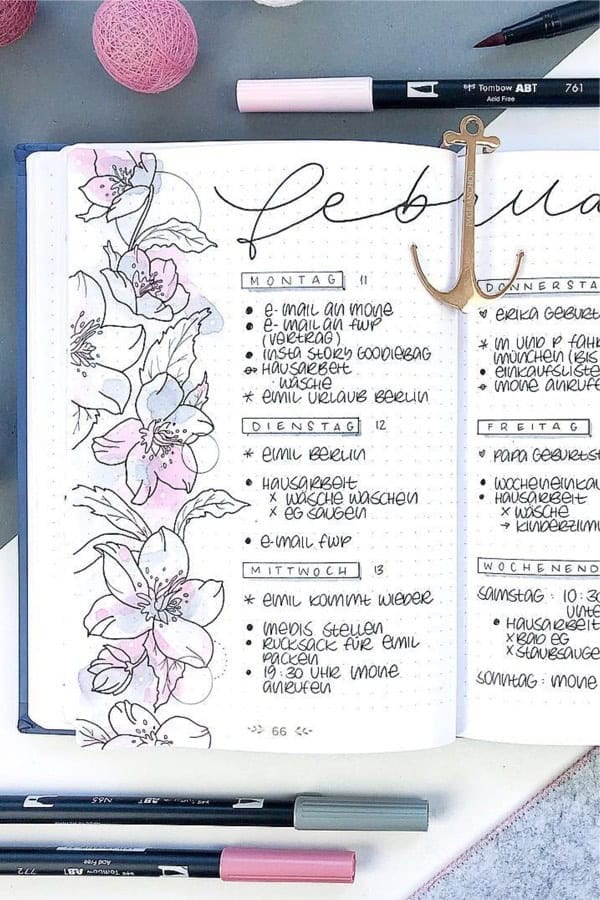 Tombow ABT
761
Acid Free
februa
MONTAG 11
• e-mail an mone
• e-mail an fwp
(vertrag)
• insta story goodiebag
hausarbeit
· wäsche
* emil urlaub berlin
DIENSTAG 12
* emil berlin
• hausarbeit
x wäsche waschen
x eg saugen
• e-mail fwp
MITTWOCH 13
* emil kommt wieder
• medis stellen
• rucksack für emil
packen
• 19:30 uhr mone
anrufen
66
DONNERSTA
♥ erika geburt
* m und p fah
münchen (bis
• einkaufsliste
mone anrufe
FREITAG
♥ papa geburtst
• wocheneinka
• hausarbeit
x wäsche
→ kinderzim
WOCHENEND
samstag: 10:30
unte
• hausarbeit
x bad eg
x staubsauge
sonntag: mone
N65
Tombow ABT
772
Tombow ABT
Acid Free